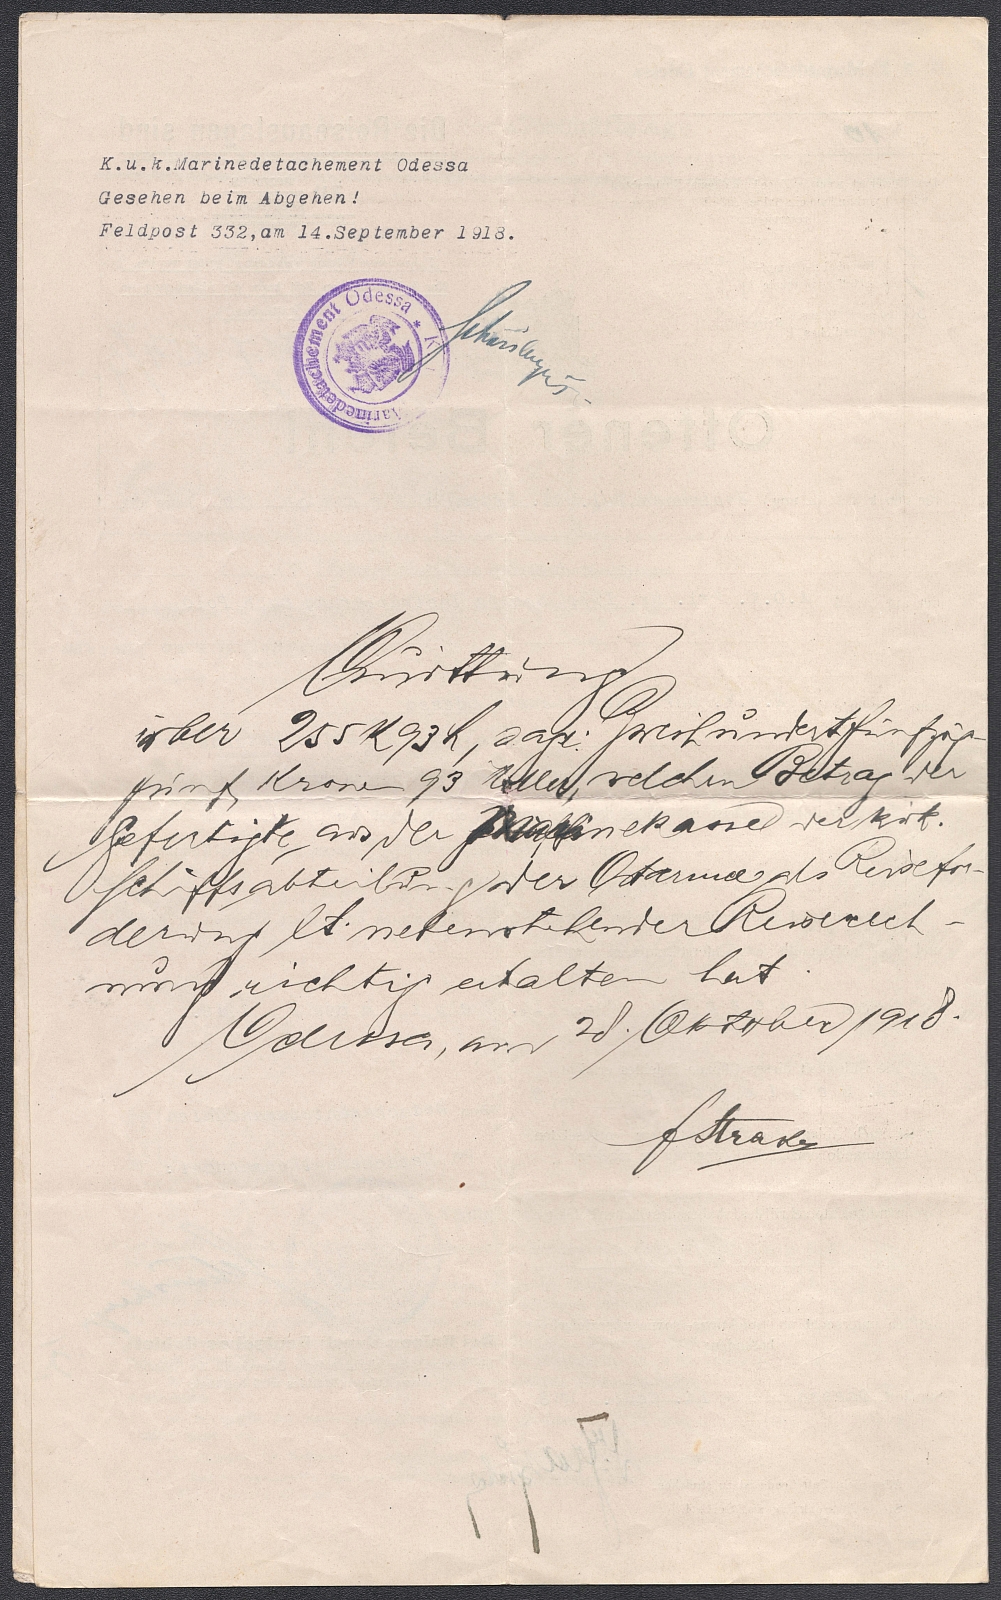 K.u.k.Marinedetachement Odessa
Gesehen beim Abgehen!
Feldpost 332,am 14.September 1918.
Marinedetachement Odessa * K
Quittung
über 255 K 93 h, sage: Zweihundertfünfzig-
fünf Kronen 93 Heller, welchen Betrag der
Gefertigte aus der kasse der k.u.k.
Schiffsabteilung der Ostarmee als Reisefor-
derung lt. nebenstehender Reiserech-
nung richtig erhalten hat.
Odessa, am 28. Oktober 1918.
F Straka